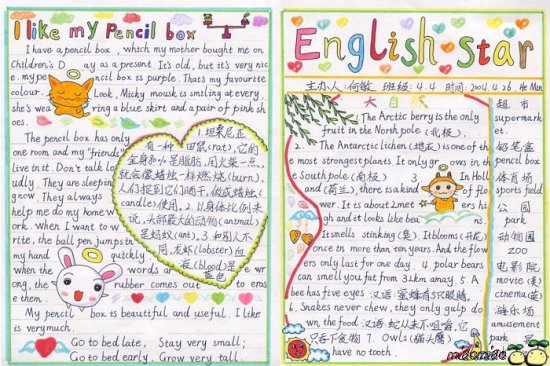 I like my Pencil box
I have a pencil box , which my mother bought me on
Children's Day as a present. It's old, but it's very nic
e. my pencil box is purple. That's my favourite
colour. Look, Micky mouse is smiling at every
she's wearing a blue skirt and a pair of pink sh
oes.
The pencil box has only
one room and my "friends"
live in it. Don't talk lo
udly. They are sleeping
now. They always
help me do my home w
ork. When I want to w
rite, the ball pen jumps to
my hand quickly
when the words are
wrong, the rubber comes out to eras
e them.
My pencil box is beautiful and useful. I like
is very much.
Go to bed late, Stay very small;
Go to bed early, Grow very tall.
1. 坦桑尼亚
有一种田鼠(rat),它的
全身都是脂肪,用火柴一点
就会像蜡烛一样燃烧(burn),
人们捉到它们晒干,做成蜡烛(
candle)使用。2.以身体比例来
说,头部最大的动物(animal)
是蚂蚁(ant)。3.和别人不
同,龙虾(lobster)的
血(blood)是
蓝色
English Star
主办人:何敏 班级:4.4 时间:2004.4.26. He Min
大自然
1. The Arctic berry is the only
fruit in the North pole (北极).
2. The Antarctic lichen (地衣) is one of the
most strongest plants. It only grows in th
e South pole (南极) 3. In Holl
and (荷兰), there is a kind of flow
er. It is about 2 meters hi
gh and it looks like bea ns.
It smells stinking (臭). It blooms (开花)
once in more than ten years. And the flow
ers only last for one day. 4. polar bears
can smell you fat from 32km away. 5. A
bee has five eyes 汉语:蜜蜂有5只眼睛。
6. Snakes never chew, they only gulp do
wn the food. 汉语:蛇从来不咀嚼,它
只吞下食物 7. Owls (猫头鹰)
have no tooth.
超市
supermark
et
铅笔盒
pencil box
体育场
sports field
公园
park
动物园
zoo
电影院
movie (美)
cinema (英)
游乐场
amusement
park